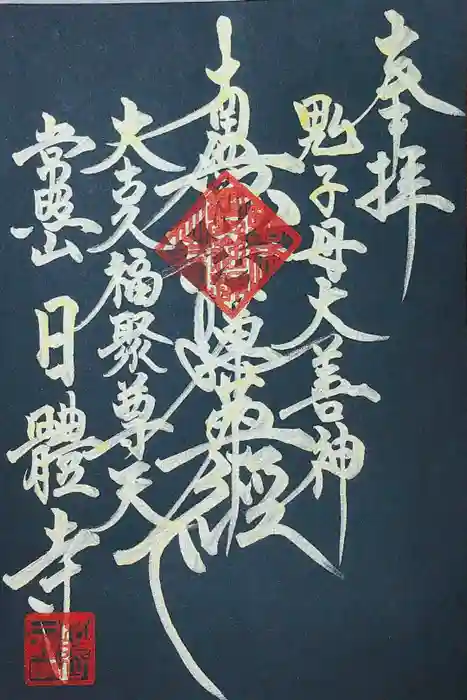 奉拝
鬼子母大善神
南無妙法蓮華経
大黒福聚尊天
常盤山 日體寺